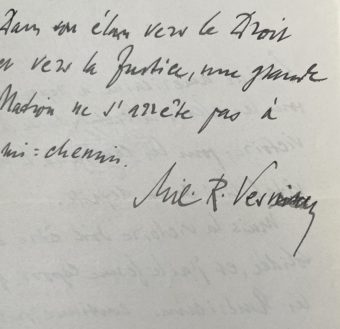 Dans son élan vers le Droit
et vers la Justice, une grande
Nation ne s'arrête pas à
mi=chemin.
Mil. R. Vesnitch